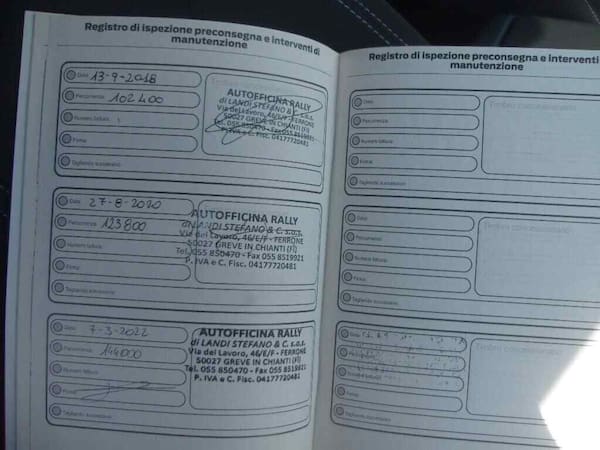 Registro di ispezione preconsegna e interventi di
manutenzione
Data 13-9-2018
Percorrenza 102400
Numero fattura
Firma
Tagliando successivo
AUTOFFICINA RALLY
di LANDI STEFANO & C. s.a.s.
Via del Lavoro, 46/E/F - FERRONE
50027 GREVE IN CHIANTI (FI)
Tel. 055 850470 - Fax 055 8519921
P. IVA e C. Fisc. 04177720481
Data 27-8-2020
Percorrenza 123800
Numero fattura
Firma
Tagliando successivo
AUTOFFICINA RALLY
di LANDI STEFANO & C. s.a.s.
Via del Lavoro, 46/E/F - FERRONE
50027 GREVE IN CHIANTI (FI)
Tel. 055 850470 - Fax 055 8519921
P. IVA e C. Fisc. 04177720481
Data 7-3-2022
Percorrenza 144000
Numero fattura
Firma
Tagliando successivo
AUTOFFICINA RALLY
di LANDI STEFANO & C. s.a.s.
Via del Lavoro, 46/E/F - FERRONE
50027 GREVE IN CHIANTI (FI)
Tel. 055 850470 - Fax 055 8519921
P. IVA e C. Fisc. 04177720481
Registro di ispezione preconsegna e interventi
manutenzione
Data
Percorrenza
Numero fattura
Firma
Tagliando successivo
Data
Percorrenza
Numero fattura
Firma
Tagliando successivo
Data
Numero fattura
Firma
Tagliando successivo